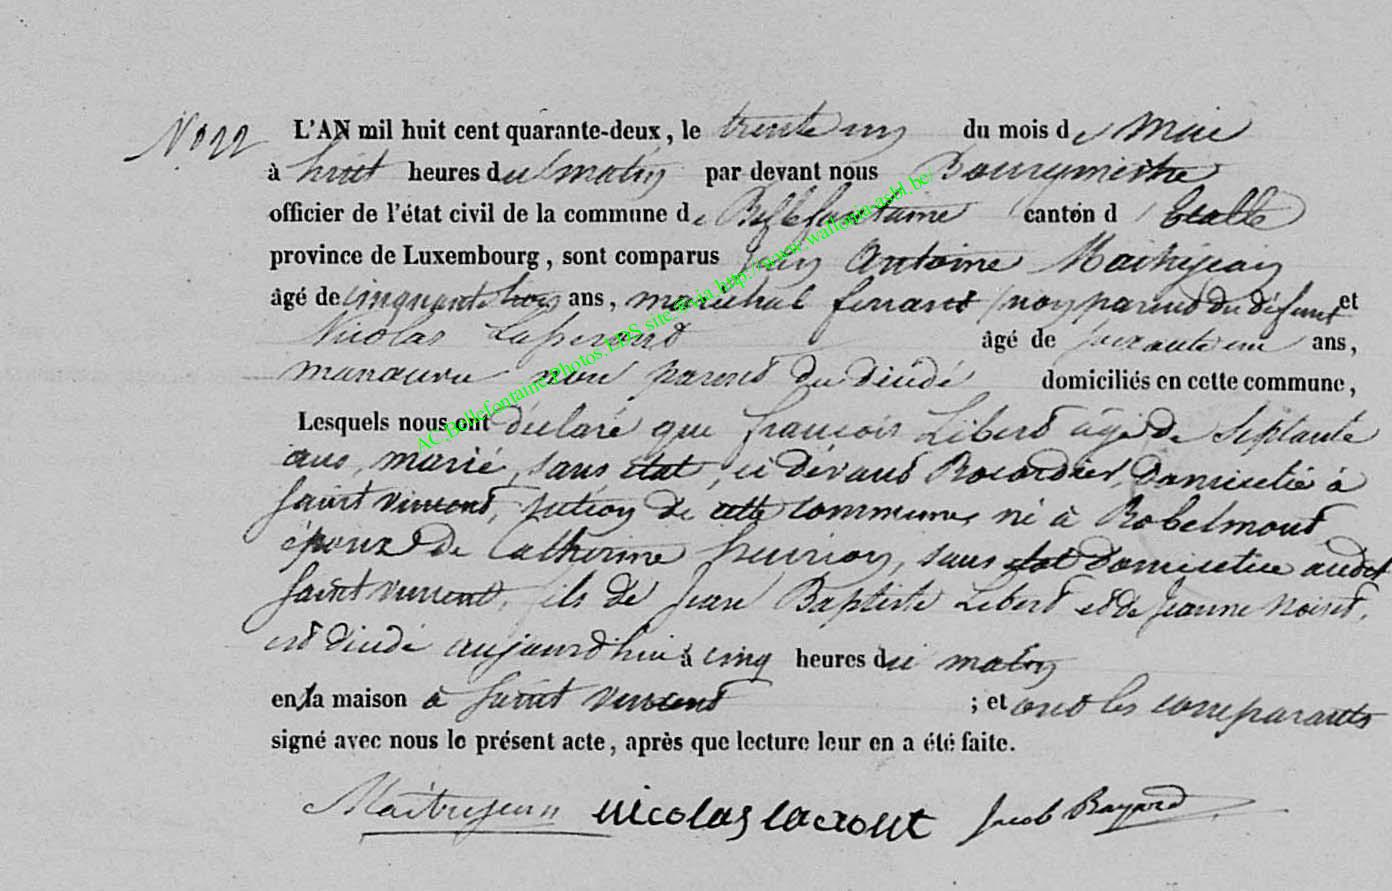 No 22
L'AN mil huit cent quarante-deux, le trente un du mois de Mai
à huit heures du matin par devant nous Bourgmestre
officier de l'état civil de la commune de Bellefontaine canton d' Etalle
province de Luxembourg, sont comparus Jean Antoine Maitrejean
âgé de cinquante trois ans, maréchal ferrant non parent du défunt et
Nicolas âgé de soixante un ans,
manœuvre non parent du décédé domiciliés en cette commune,
Lesquels nous ont déclaré que françois Libert âgé de Septante
ans, marié, sans état, ci devant domicilié à
saint vincent, section de cette commune, né à Robelmont,
époux de Catherine henrion, sans état domiciliée audit
saint vincent, fils de Jean Baptiste Libert et de Jeanne Noiret,
est décédé aujourd'hui à cinq heures du matin
en la maison à saint vincent ; et ont les comparants
signé avec nous le présent acte, après que lecture leur en a été faite.
Maitrejean nicolas lacrout Jacob Bayard
AC.Bellefontaine.Photos.EDS site via http://www.wallonia-asbl.be/